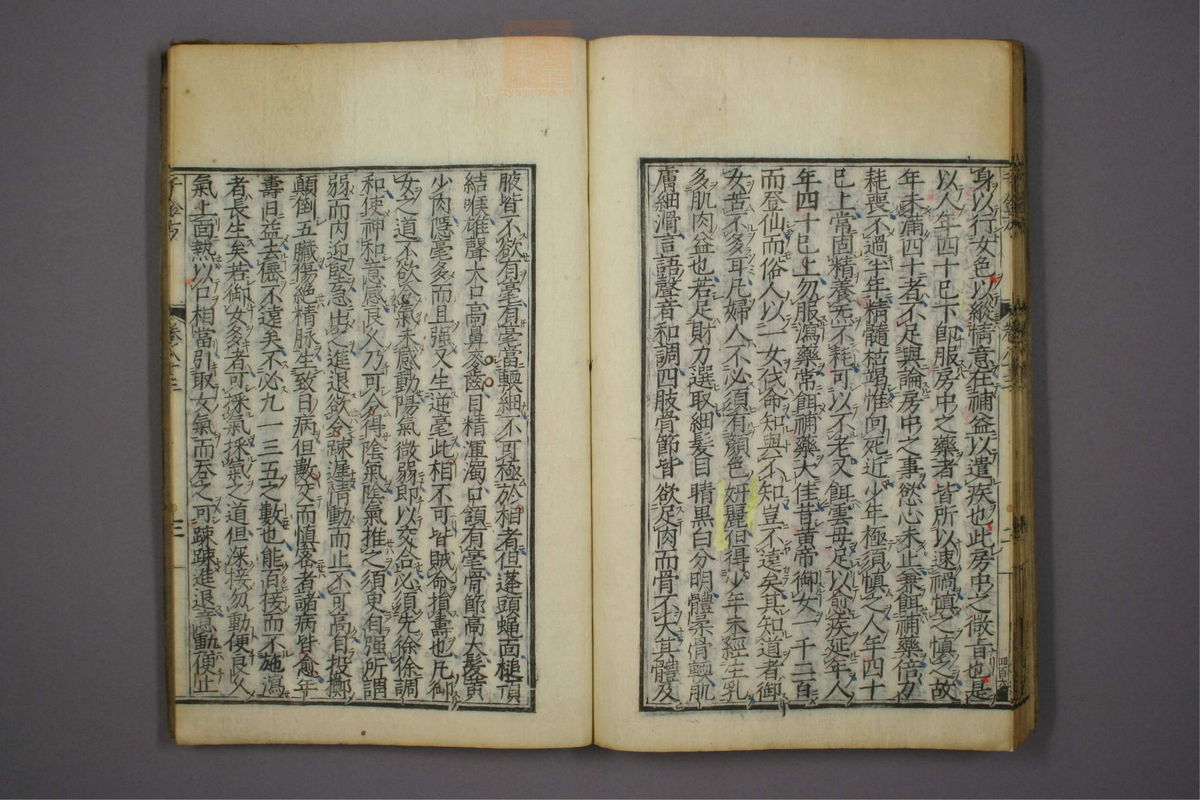 身以行女色以縱情意在補益以遣疾也此房中之微旨也是
以人年四十已下即服房中之藥者皆所以速禍慎之慎之故
年未滿四十者不足與論房中之事慾心未止兼餌補藥倍力
耗喪不過半年精髓枯竭惟向死近少年極須慎之人年四十
已上常固精養氣不耗可以不老又餌雲母足以愈疾延年人
年四十已上勿服瀉藥常餌補藥大佳昔黃帝御女一千二百
而登仙而俗人以一女伐命知與不知豈不遠矣其知道者御
女苦不多耳凡婦人不必須有顏色妍麗但得少年未經生乳
多肌肉益也若足財力選取細髮目睛黑白分明體柔骨軟肌
膚細滑言語聲音和調四肢骨節皆欲足肉而骨不大其體及
腋皆不欲有毫有毫當軟細不可極於相者但蓬頭蠅面槌項
結喉雄聲大口高鼻麥齒目精渾濁口頷有毫骨節高大髮黃
少肉隱毫多而且强又生逆毫此相不可皆賊命損壽也凡御
女之道不欲令氣未感動陽氣微弱即以交合必須先徐徐調
和使神和意感良久乃可令得陰氣陰氣推之須臾自强所謂
弱而内迎堅急出之進退欲令踈遲情動而止不可高自投擲
顛倒五臟傷絕精脉生致百病但數交而慎密者諸病皆愈年
壽日益去僊不遠矣不必九一三五之數也能百接而不施瀉
者長生矣若御女多者可採氣採氣之道但深接勿動便良久
氣上面熱以口相當引取女氣而吞之可踈踈進退意動便止
千金方
卷八十三
三